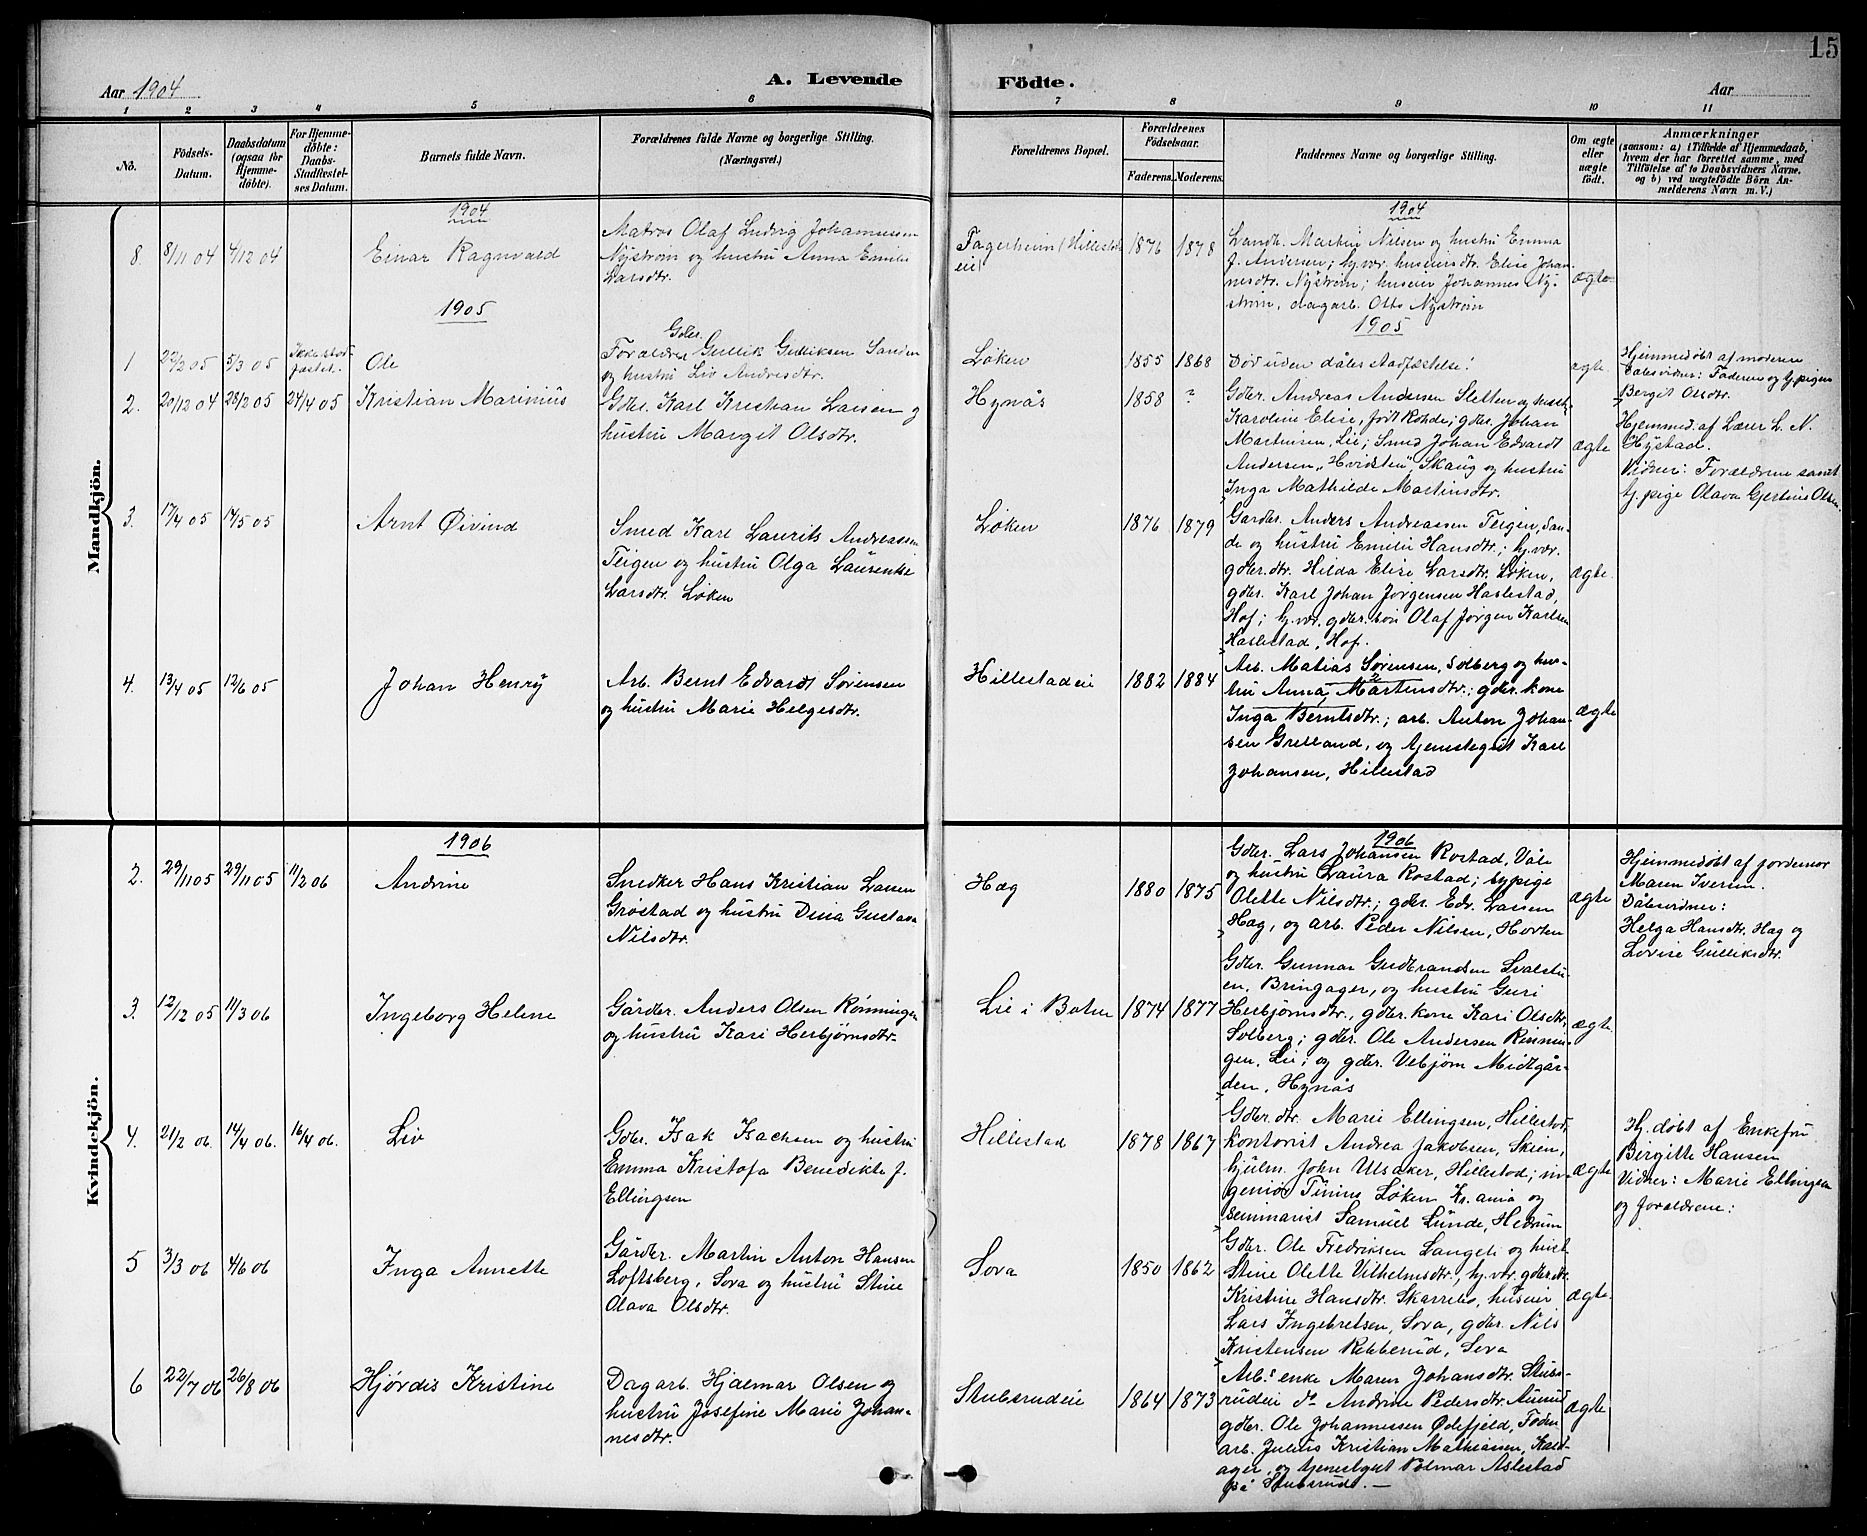 15
A. Levende Födte.
Aar 1904
Aar
1 2 3 4 5 6 7 8 9 10 11
No.
Födsels-Datum.
Daabsdatum (ogsaa for Hjemme-döbte).
For Hjemme-döbte: Daabs-Stadfæstel-ses Datum.
Barnets fulde Navn.
Forældrenes fulde Navne og borgerlige Stilling.
(Næringsvei.)
Forældrenes Bopæl.
Forældrenes Födselsaar.
Faderens. Moderens.
Faddernes Navne og borgerlige Stilling.
Om ægte eller uægte födt.
Anmærkninger
(saasom: a) i Tilfælde af Hjemmedaab,
hvem der har forrettet samme, med
Tilföielse af to Daabsvidners Navne.
og b) ved uægtefödte Börn An-
melderens Navn m. V.)
Mandkjön.
1904
8. 8/11 04 4/12 04 Einar Ragnvald
Matros Olaf Ludvig Johannessen
Nyström og hustru Anna Emilie
Larsdtr.
Fagerheim (Hillestad
eie)
1876 1878
1904
Landh. Martin Nilsen og hustru Emma
f. Andersen; hj.vær. huseiersdtr. Elise Johan-
nesdtr. Nyström; huseier Johannes Ny-
ström, dagarb. Otto Nyström
ægte
1905
1 22/2 05 5/3 05 Ikke stad-
fæstet. Ole
Gdbr.
Forældre Gullik Gulliksen Sanden
og hustru Liv Andresdtr.
Löken 1855 1868
1905
Død uden dåbs stadfæstelse!
ægte
Hjemmedøbt af moderen
Dåbsvidner: Faderen og tj.pigen
Bergit Olsdtr.
2. 20/12 04 28/2 05 24/4 05 Kristian Marinius
Gdbr. Karl Kristian Larsen og
hustru Margit Olsdtr.
Hynås 1858 ?
Gdbr. Andreas Andersen Sletten og hustr.
Karoline Elise, født Rohde; gdbr. Johan
Martinsen, Lie; Smed Johan Edvardt
Andersen „Hvidsten”, Skaug og hustru
Inga Mathilde Martinsdtr.
ægte
Hjemmed. af Lærer L. N.
Hystad.
Vidner: Forældrene samt
tj.pige Olava Gjertine Olsen.
3. 17/4 05 14/5 05 Arnt Øivind
Smed Karl Laurits Andreassen
Teigen og hustru Olga Laurentse
Larsdtr. Löken
Löken 1876 1879
Gardbr. Anders Andreassen Teigen, San-
de og hustru Emilie Hansdtr.; hj.vær.
gdbr.dtr. Hilda Elise Larsdtr. Löken,
gdbr. Karl Johan Jörgensen Haslestad,
Hof; hj.vær. gdbr.søn Olaf Jörgen Karlsen
Haslestad, Hof.
ægte.
4. 13/4 05 12/6 05 Johan Henry
Arb. Bernt Edvardt Sørensen
og hustru Marie Helgesdtr.
Hillestadeie 1882 1884
Arb. Matias Sørensen, Solberg og hus-
tru Anna Martensdtr.; gdbr. kone
Inga Berntsdtr.; arb. Anton Johan-
sen Grelland, og tjenestegut Karl
Johansen, Hillestad
ægte
Kvindekjön.
1906
2. 29/11 05 29/11 05 11/2 06 Andrine
Snedker Hans Kristian Larsen
Grøstad og hustru Dina Gustava
Nilsdtr.
Hag 1880 1875
1906
Gdbr. Lars Johansen Rostad, Våle
og hustru Laura Rostad; tj.pige
Olette Nilsdtr.; gdbr. Edv. Larsen
Hag, og arb. Peder Nilsen, Horten
ægte
Hjemmedøbt af jordemor
Maren Iversen.
Dåbsvidner:
Helga Hansdtr. Hag og
Lovise Gulliksdtr.
3. 12/12 05 11/3 06 Ingeborg Helene
Gårdbr. Anders Olsen Rönningen
og hustru Kari Herbjørnsdtr.
Lie i Botne 1874 1877
Gdbr. Gunnar Gudbrandsen Svalstu-
en, Bringager, og hustru Guri
Herbjørnsdtr., gdbr. kone Kari Olsdtr,
Solberg; gdbr. Ole Andersen Rönnin-
gen, Lie; og gdbr. Vebjørn Midtgår-
den, Hynås
ægte.
4. 21/2 06. 14/4 06. 16/4 06. Liv
Gdbr. Isak Isachsen og hustru
Emma Kristofa Benedikte f.
Ellingsen
Hillestad 1878 1867
Gdbr.dtr. Marie Ellingsen, Hillestad,
kontorist Andrea Jakobsen, Skien,
hjulm. John Ulsaker, Hillestad; in-
geniør Tinius Löken Kr.ania og
seminarist Samuel Lunde, Hedrum
ægte
Hj.døbt af Enkefru
Birgitte Hansen
Vidner: Marie Ellingsen
og forældrene:
5 3/3 06 4/6 06 Inga Annette
Gårdbr. Martin Anton Hansen
Loftsberg, Sora og hustru Stine
Olava Olsdtr.
Sova 1850 1862
Gdbr. Ole Fredriksen Langeli og hust.
Stine Olette Vilhelmsdtr., hj.vær. gdbr.dtr.
Kristine Hansdtr. Skarrebo, huseier
Lars Ingebretsen, Sova, gdbr. Nils
Kristensen Ribberud, Sova
ægte.
6 22/7 06 26/8 06 Hjördis Kristine
Dagarb. Hjalmar Olsen og
hustru Josefine Marie Johan-
nesdtr.
Stubsrudeie 1864 1873
Arb.s enke Maren Johansdtr. Stubs-
rudeie do Andrine Pedersdtr. Aunud
gdbr. Ole Johannessen Ødefjeld, Foden
arb. Julius Kristian Mathiassen, Kald-
ager, og tjenestegut Volmar Aslestad
på Stubsrud. —
ægte